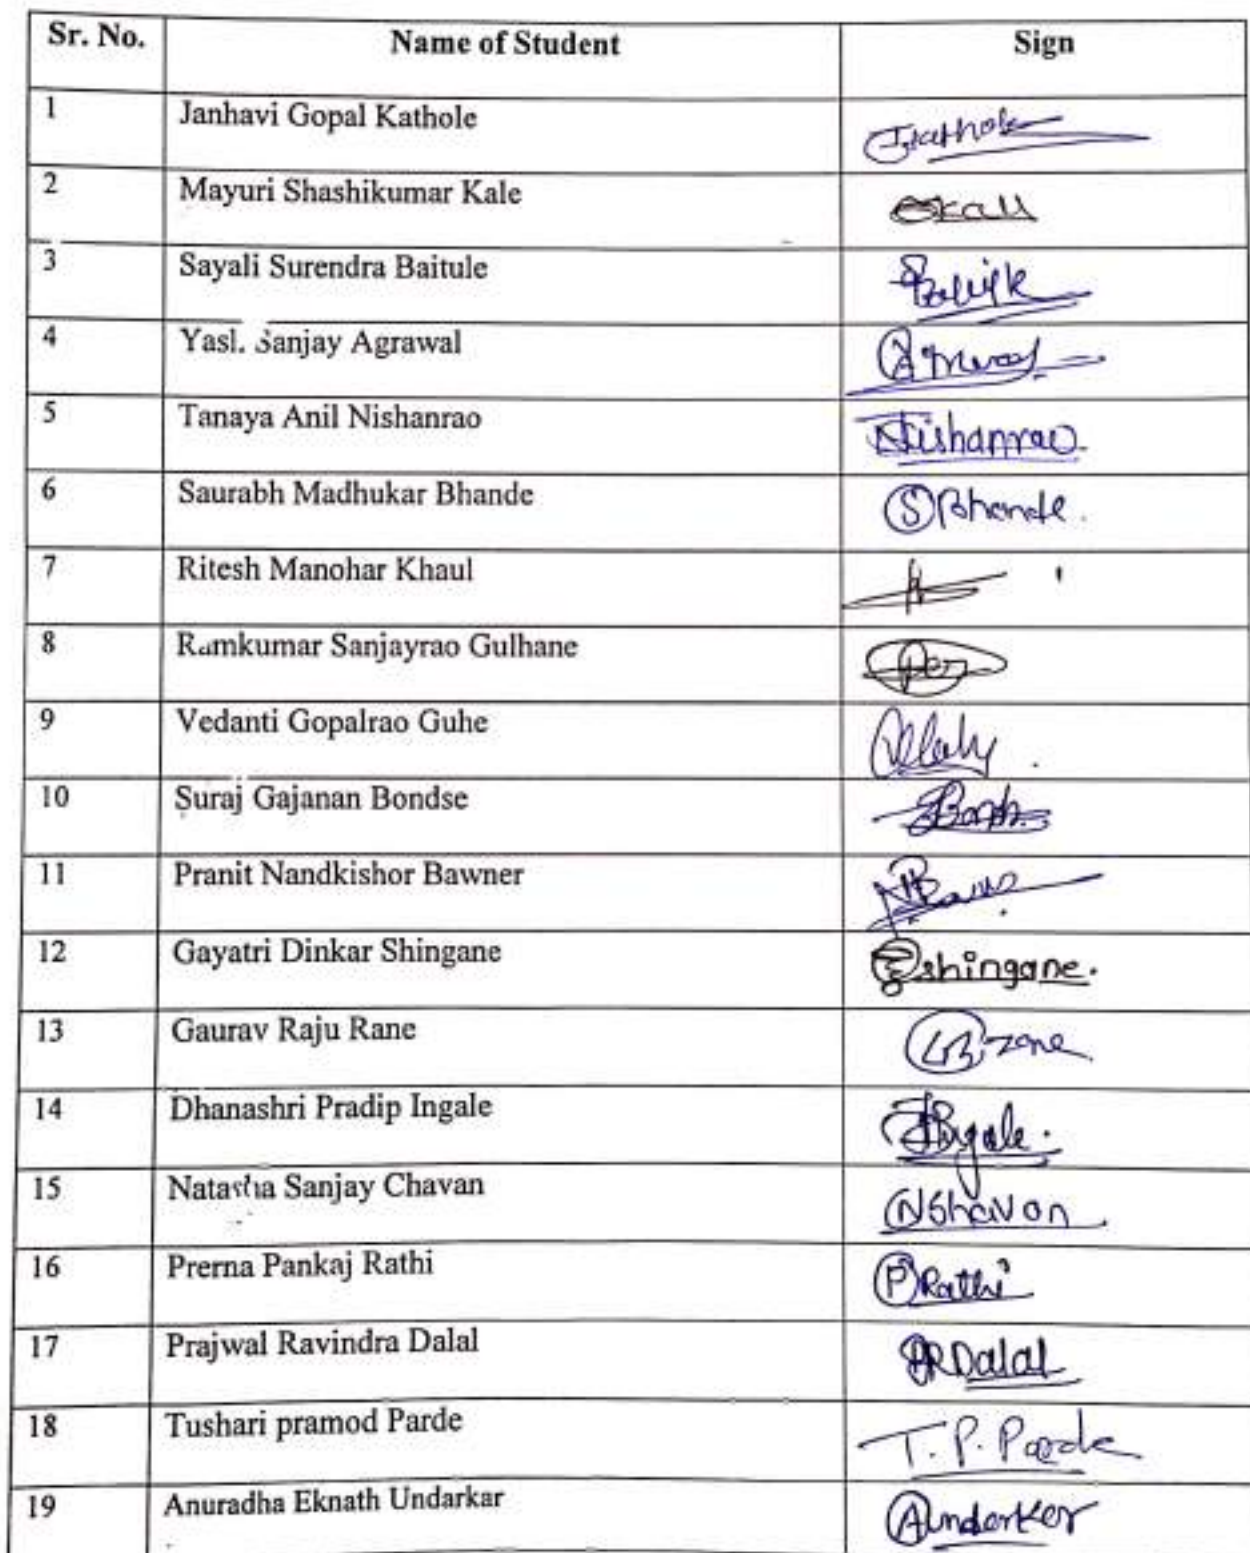 Sr. No. Name of Student Sign
1 Janhavi Gopal Kathole JKathole
2 Mayuri Shashikumar Kale
3 Sayali Surendra Baitule
4 Sanjay Agrawal
5 Tanaya Anil Nishanrao Nishanrao
6 Saurabh Madhukar Bhande S Bhande.
7 Ritesh Manohar Khaul
8 Ramkumar Sanjayrao Gulhane
9 Vedanti Gopalrao Guhe
10 Suraj Gajanan Bondse
11 Pranit Nandkishor Bawner
12 Gayatri Dinkar Shingane shingane.
13 Gaurav Raju Rane
14 Dhanashri Pradip Ingale
15 Natasha Sanjay Chavan
16 Prerna Pankaj Rathi P Rathi
17 Prajwal Ravindra Dalal PRDalal
18 Tushari pramod Parde T. P. Parde
19 Anuradha Eknath Undarkar AUndarkar